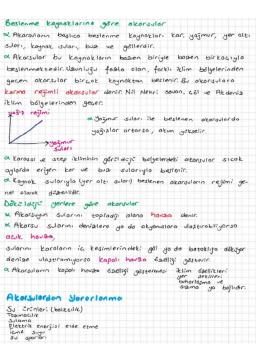 Beslenme kaynaklarına göre akarsular
α Akarsuların başlıca beslenme kaynakları kar, yağmur, yer altı
suları, kaynak suları, buz ve göllerdir.
α Akarsular bu kaynakların bazen biriyle bazen birkaçıyla
beslenmektedir. Uzunluğu fazla olan, farklı iklim bölgelerinden
geçen akarsular birçok kaynaktan beslenir. Bu akarsulara
karma rejimli akarsular denir. Nil Nehri savan, çöl ve Akdeniz
iklim bölgelerinden geçer.
yağış rejimi
α Yağmur suları ile beslenen akarsularda
yağışlar artarsa, akım yükselir.
α Karasal ve step ikliminin görüldüğü bölgelerdeki akarsular sıcak
aylarda eriyen kar ve buz sularıyla beslenir.
α Kaynak sularıyla (yer altı suları) beslenen akarsuların rejimi ge-
nel olarak düzenlidir.
Döküldüğü yerlere göre akarsular
α Akarsuyun sularını topladığı alana havza denir.
α Akarsu sularını denizlere ya da okyanuslara ulaştırabiliyorsa
açık havza,
sularını karaların iç kesimlerindeki göl ya da bataklığa döküyor
denize ulaştıramıyorsa kapalı havza özelliği gösterir.
α Akarsuların kapalı havza özelliği göstermesi iklim özellikleri
yer şekilleri
buharlaşma ve
sızma ya bağlıdır.
Akarsulardan Yararlanma
Su ürünleri (balıkçılık)
Taşımacılık
Sulama
Elektrik enerjisi elde etme
İçme suyu
Su sporları